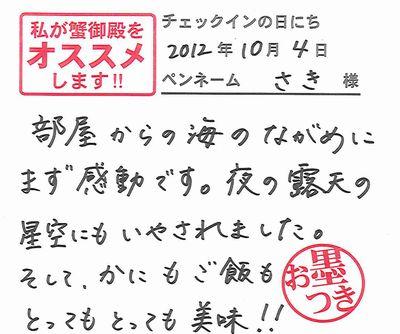 私が蟹御殿を
オススメ
します!!
チェックインの日にち
2012年10月4日
ペンネーム さき 様
部屋からの海のながめに
まず感動です。夜の露天の
星空にもいやされました。
そして、かにもご飯も
とってもとっても美味!!
お墨つき